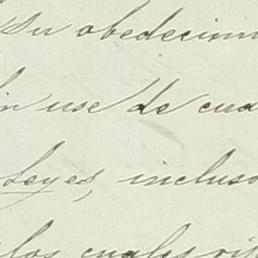 su obedecimi
in use de cua
leyes, incluso
los cuales